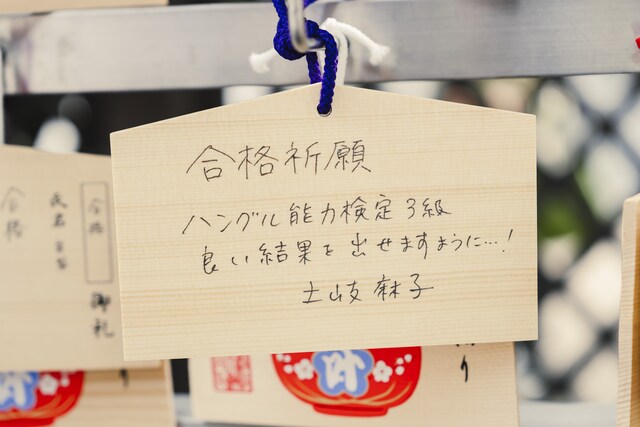 合格祈願
ハングル能力検定3級
良い結果を出せますように…!
土岐麻子
合格
氏名
御礼
り